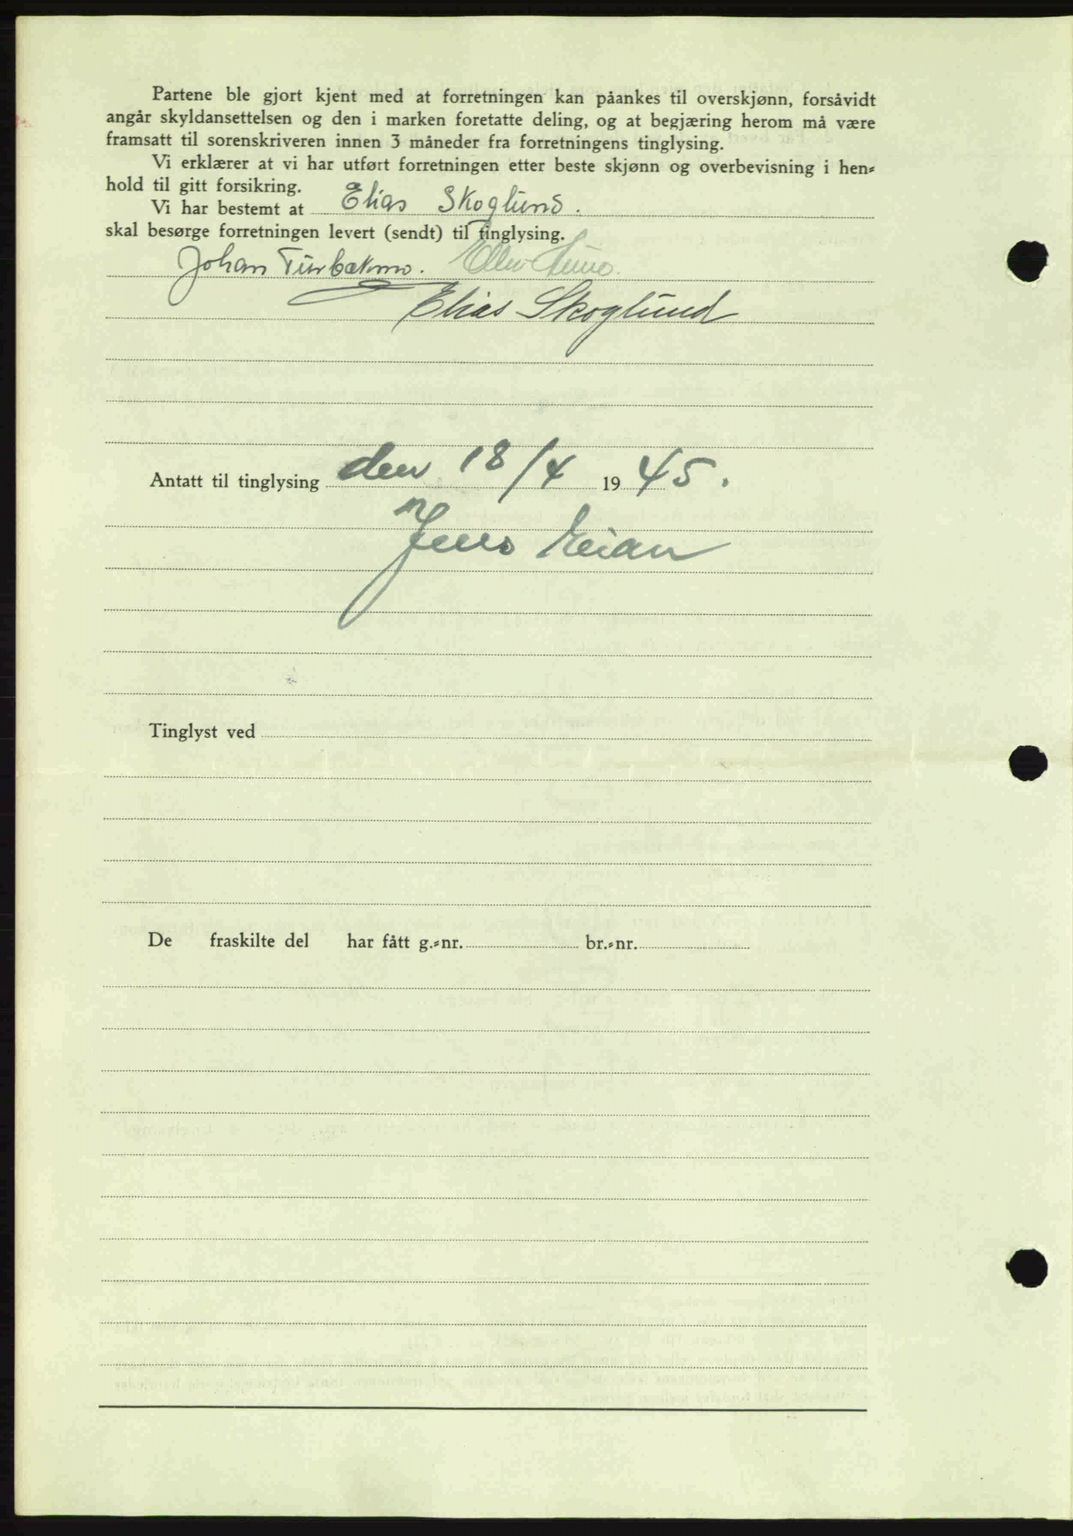 Partene ble gjort kjent med at forretningen kan påankes til overskjønn, forsåvidt
angår skyldansettelsen og den i marken foretatte deling, og at begjæring herom må være
framsatt til sorenskriveren innen 3 måneder fra forretningens tinglysing.
Vi erklærer at vi har utført forretningen etter beste skjønn og overbevisning i hen-
hold til gitt forsikring.
Vi har bestemt at Elias Skoglund.
skal besørge forretningen levert (sendt) til tinglysing.
Johan
Elias Skoglund
Antatt til tinglysing den 18/4 1945.
Jens
Tinglyst ved
De fraskilte del har fått g.-nr. br.-nr.